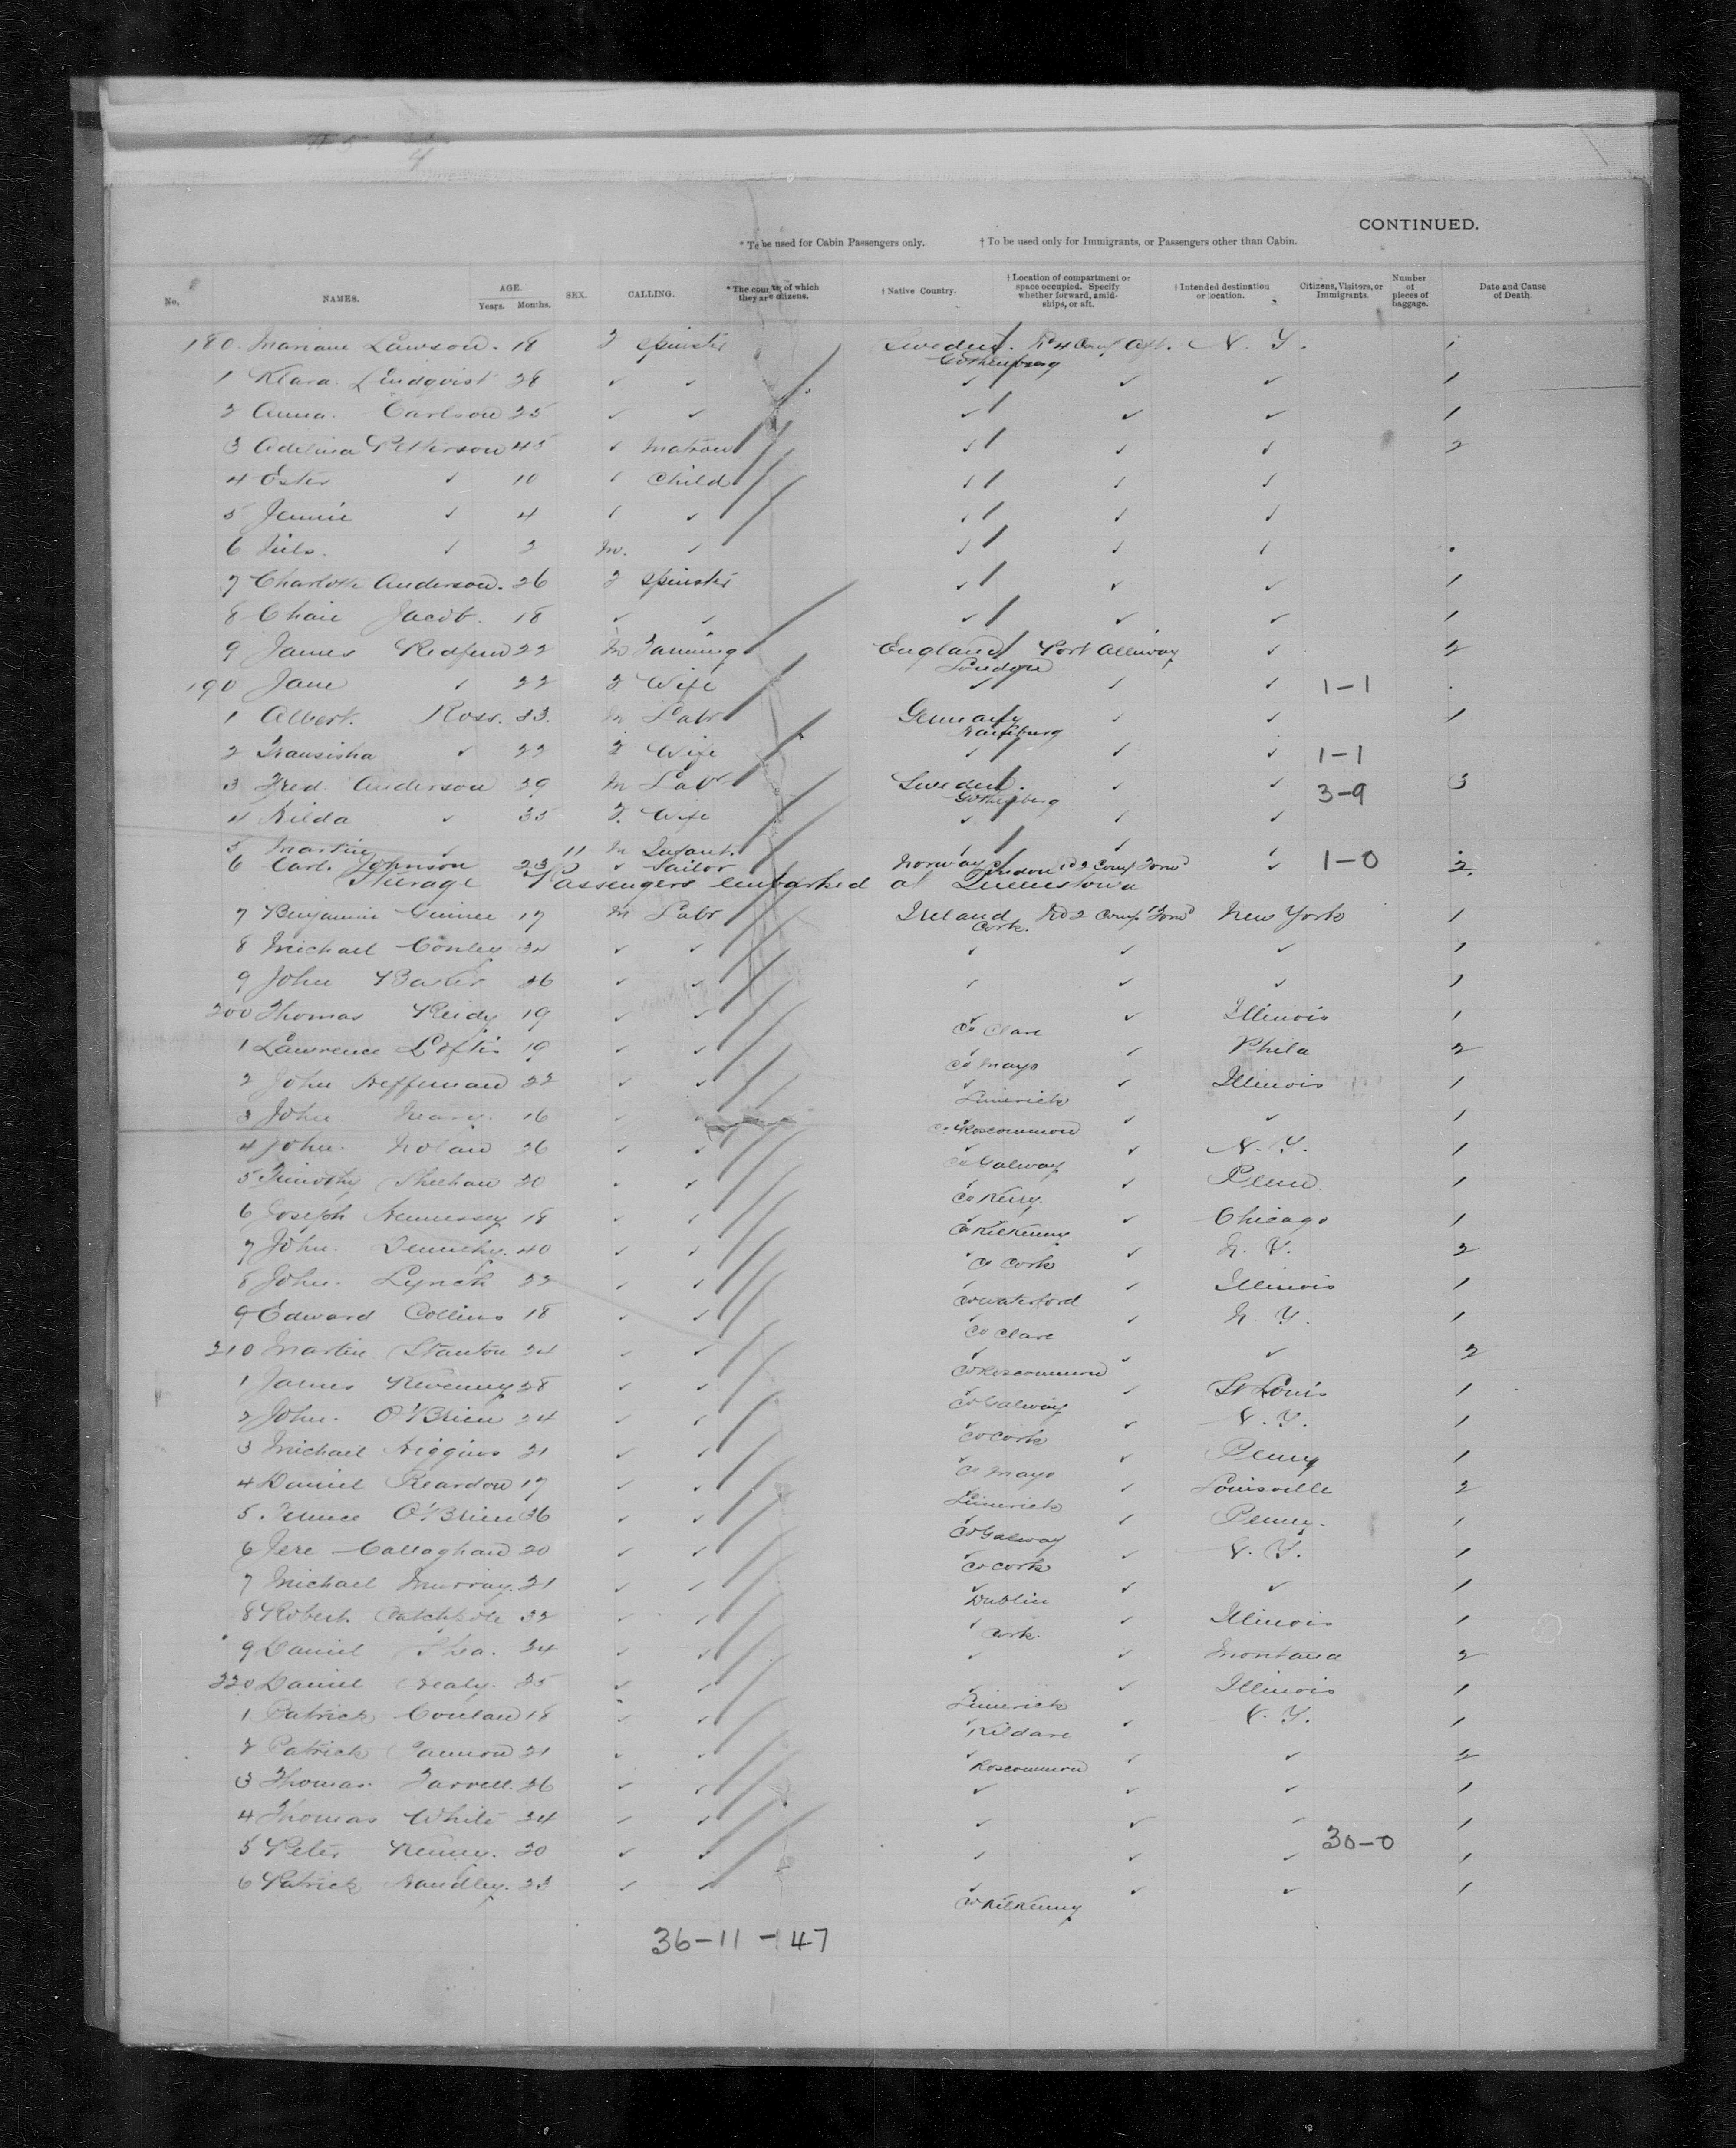 CONTINUED.
* To be used for Cabin Passengers only. † To be used only for Immigrants, or Passengers other than Cabin.
No. NAMES. AGE. Years. Months. SEX. CALLING. * The country of which they are citizens. † Native Country. † Location of compartment or space occupied. Specify whether forward, amidships, or aft. † Intended destination or location. Citizens, Visitors, or Immigrants. Number of pieces of baggage. Date and Cause of Death.
180 Lawson. 18 F Spinster Sweden. Aft. N. Y. 1
Gothenburg
1 Klara Lindqvist 28 ✓ ✓ ✓ ✓ ✓ 1
2 Anna. Carlson 25 ✓ ✓ ✓ ✓ ✓ 1
3 Adelina Petterson 45 ✓ Matron ✓ ✓ ✓ 2
4 Ester ✓ 10 ✓ Child ✓ ✓ ✓
5 Jennie ✓ 4 ✓ ✓ ✓ ✓ ✓
6 Nils. ✓ M. ✓ ✓ ✓ ✓
7 Charlotte Anderson. 26 F Spinster ✓ ✓ ✓ 1
8 Jacob. 18 ✓ ✓ ✓ ✓ ✓ 1
9 James Redfern 22 M England Port Alleway ✓ 2
London
190 Jane ✓ 22 F Wife ✓ ✓ ✓ 1-1
1 Albert. Ross. 33. M Labr Germany ✓ ✓ 1
2 ✓ 22 F Wife ✓ ✓ ✓ 1-1
3 Fred. Anderson 39 M Labr Sweden. ✓ ✓ 3-9 3
Gothenberg
4 Hilda ✓ 35 F. Wife ✓ ✓ ✓
5 Martin ✓ 11 M Infant. ✓ ✓ ✓
6 Carl. Johnson 23 ✓ Sailor Norway London No 2 Comp Forwd ✓ 1-0 2
Steerage Passengers embarked at Queenstown
7 Benjamin 17 M Labr Ireland No 2 Comp Forwd New York 1
Cork.
8 Michael Conley 34 ✓ ✓ ✓ ✓ ✓ 1
9 John Baxter ✓ ✓ ✓ ✓ ✓ 1
200 Thomas Reidy 19 ✓ ✓ ✓ ✓ Illinois 1
Co Clare
1 Lawrence Loftis 19 ✓ ✓ ✓ ✓ Phila 2
Co Mayo
2 John Heffernan 22 ✓ ✓ ✓ ✓ Illinois 1
Limerick
3 John Neary. 16 ✓ ✓ ✓ ✓ ✓ 1
Co Roscommon
4 John. Nolan 26 ✓ ✓ ✓ ✓ N. Y. 1
Co Galway
5 Timothy Sheehan 20 ✓ ✓ ✓ ✓ Penn. 1
Co Kerry
6 Joseph Hennessey 18 ✓ ✓ ✓ ✓ Chicago 1
Co Kilkenny
7 John. Dennehy. 40 ✓ ✓ ✓ ✓ N. Y. 2
Co Cork
8 John. Lynch 22 ✓ ✓ ✓ ✓ Illinois 1
Co Waterford
9 Edward Collins 18 ✓ ✓ ✓ ✓ N. Y. 1
Co Clare
210 Martin Stanton 24 ✓ ✓ ✓ ✓ ✓ 2
Co Roscommon
1 James 28 ✓ ✓ ✓ ✓ St Louis 1
Co Galway
2 John. O'Brien 24 ✓ ✓ ✓ ✓ N. Y. 1
Co Cork
3 Michael Higgins 21 ✓ ✓ ✓ ✓ Penny 1
Co Mayo
4 Daniel Reardon 17 ✓ ✓ ✓ ✓ Louisville 2
Limerick
5 Terence O'Brien 36 ✓ ✓ ✓ ✓ Penny. 1
Co Galway
6 Jere Callaghan 20 ✓ ✓ ✓ ✓ N. Y. 1
Co Cork
7 Michael Murray. 21 ✓ ✓ ✓ ✓ ✓ 1
Dublin
8 Robert. Catchpole 32 ✓ ✓ ✓ ✓ Illinois 1
Cork.
9 Daniel Shea. 24 ✓ ✓ ✓ ✓ Montana 2
220 Daniel Healy. 25 ✓ ✓ ✓ ✓ Illinois 1
Limerick
1 Patrick Conlan 18 ✓ ✓ ✓ ✓ N. Y. 1
Kildare
2 Patrick Gannon 21 ✓ ✓ ✓ ✓ ✓ 2
Roscommon
3 Thomas. Farrell. 26 ✓ ✓ ✓ ✓ ✓ 1
4 Thomas White 24 ✓ ✓ ✓ ✓ ✓ 1
5 Peter Kenny. 20 ✓ ✓ ✓ ✓ ✓ 30-0 1
6 Patrick Handley. 23 ✓ ✓ ✓ ✓ ✓ 1
Co Kilkenny
36-11-47